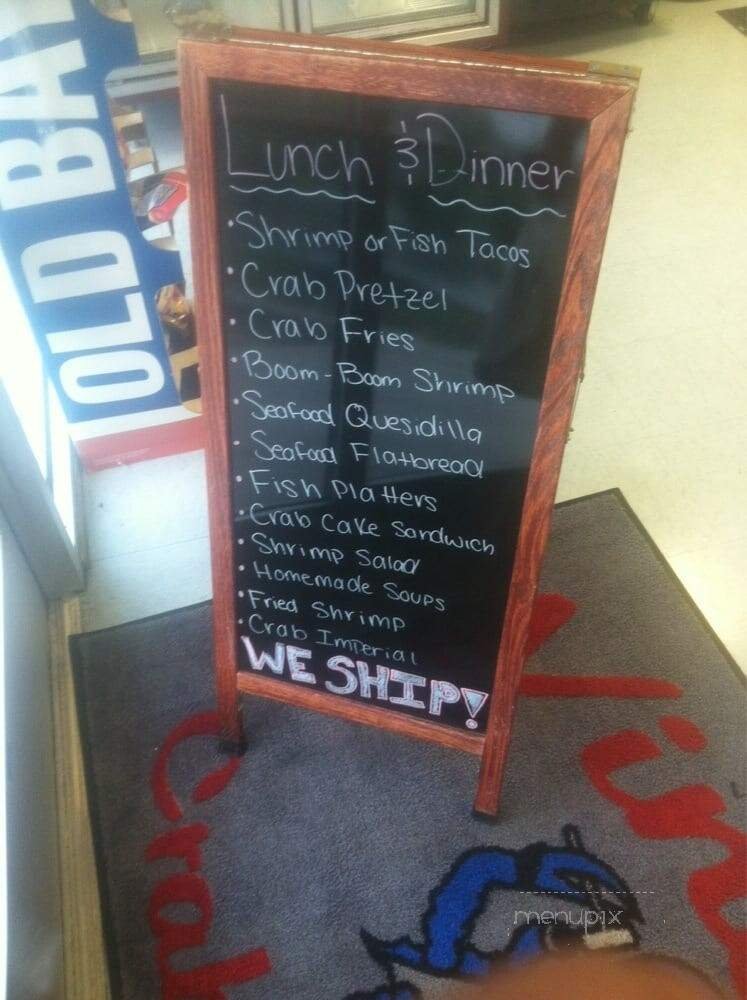 OLD BA
Lunch & Dinner
• Shrimp or Fish Tacos
• Crab Pretzel
• Crab Fries
• Boom-Boom Shrimp
• Seafood Quesidilla
• Seafood Flatbread
• Fish Platters
• Crab Cake Sandwich
• Shrimp Salad
• Homemade Soups
• Fried Shrimp
• Crab Imperial
WE SHIP!
Crab
menupix